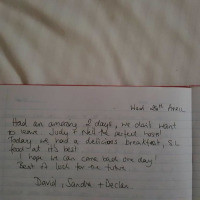 Wed 23rd April
Had an amazing 2 days, we don't want
to leave. Judy & Neil the perfect hosts!
Today we had a delicious breakfast, S.L
food at it's best!
I hope we can come back one day!
Best of luck for the future
David, Sandra + Declan